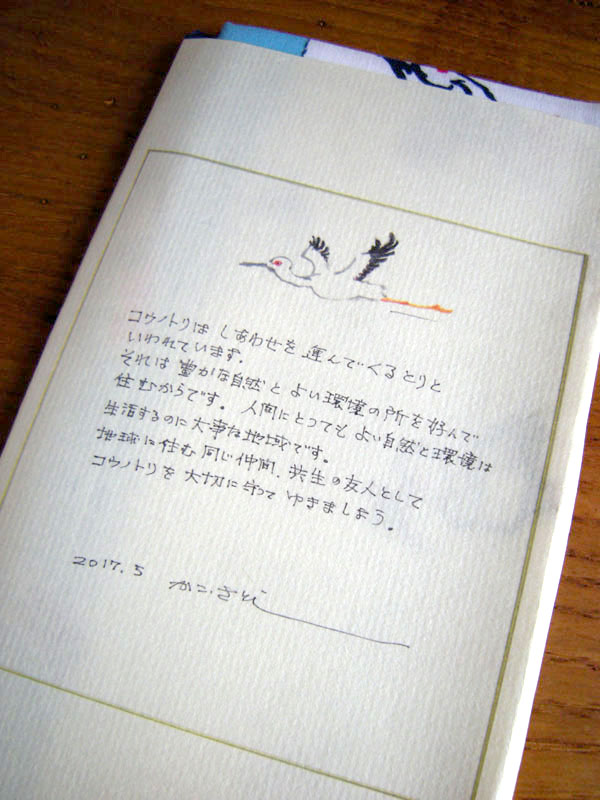 コウノトリは しあわせを 運んでくるとりと
いわれています。
それは 豊かな自然と よい環境の所を好んで
住むからです。 人間にとっても よい自然と環境は
生活するのに大事な地域です。
地球に住む 同じ仲間、共生の友人として
コウノトリを 大切に守って ゆきましょう。
2017.5 かこ・さとし